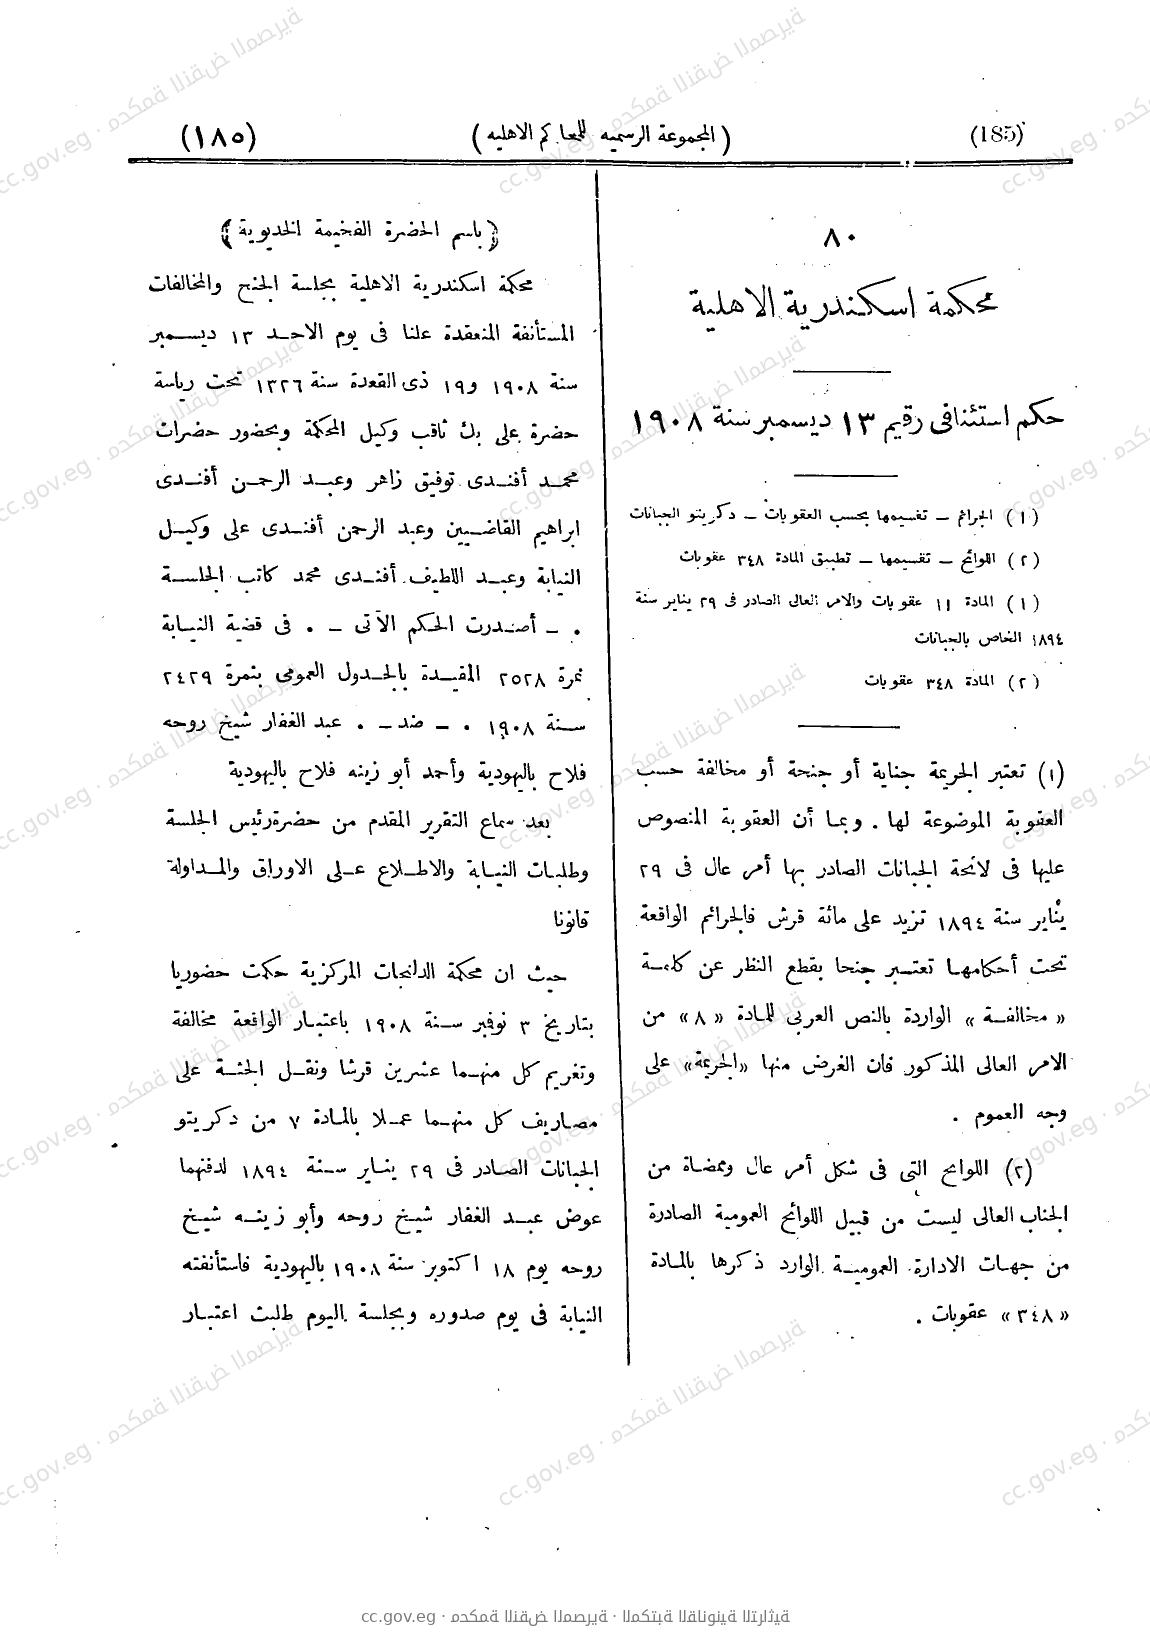 (185)
( المجموعة الرسميه للمحاكم الاهليه )
(١٨٥)
٨٠
محكمة اسكندرية الاهلية
حكم استئنافى رقيم ١٣ ديسمبر سنة ١٩٠٨
(١) الجرائم – تقسيمها بحسب العقوبات – دكريتو الجبانات
(٢) اللوائح – تقسيمها – تطبيق المادة ٣٤٨ عقوبات
(١) المادة ١١ عقوبات والامر العالى الصادر فى ٢٩ يناير سنة
١٨٩٤ الخاص بالجبانات
(٢) المادة ٣٤٨ عقوبات
(١) تعتبر الجريمة جناية أو جنحة أو مخالفة حسب
العقوبة الموضوعة لها . وبما أن العقوبة المنصوص
عليها فى لائحة الجبانات الصادر بها أمر عال فى ٢٩
يناير سنة ١٨٩٤ تزيد على مائة قرش فالجرائم الواقعة
تحت أحكامها تعتبر جنحا بقطع النظر عن كلمة
« مخالفة » الواردة بالنص العربى للمادة «٨» من
الامر العالى المذكور فان الغرض منها «الجريمة» على
وجه العموم .
(٢) اللوايح التى فى شكل أمر عال وممضاة من
الجناب العالى ليست من قبيل اللوائح العمومية الصادرة
من جهات الادارة العمومية الوارد ذكرها بالمادة
«٣٤٨» عقوبات .
﴿ باسم الحضرة الفخيمة الخديوية ﴾
محكمة اسكندرية الاهلية بجلسة الجنح والمخالفات
المستأنفة المنعقدة علنا فى يوم الاحد ١٣ ديسمبر
سنة ١٩٠٨ و١٩ ذى القعدة سنة ١٣٢٦ تحت رياسة
حضرة على بك ثاقب وكيل المحكمة وبحضور حضرات
محمد أفندى توفيق زاهر وعبد الرحمن أفندى
ابراهيم القاضيين وعبد الرحمن أفندى على وكيل
النيابة وعبد اللطيف أفندى محمد كاتب الجلسة
. – أصدرت الحكم الآتى – . فى قضية النيابة
نمرة ٢٥٢٨ المقيدة بالجدول العمومى بنمرة ٢٤٢٩
سنة ١٩٠٨ . – ضد – . عبد الغفار شيخ روحه
فلاح باليهودية وأحمد أبو زينه فلاح باليهودية
بعد سماع التقرير المقدم من حضرة رئيس الجلسة
وطلبات النيابة والاطلاع على الاوراق والمداولة
قانونا
حيث ان محكمة الدلنجات المركزية حكمت حضوريا
بتاريخ ٣ نوفمبر سنة ١٩٠٨ باعتبار الواقعة مخالفة
وتغريم كل منهما عشرين قرشا ونقل الجثة على
مصاريف كل منهما عملا بالمادة ٧ من دكريتو
الجبانات الصادر فى ٢٩ يناير سنة ١٨٩٤ لدفنهما
عوض عبد الغفار شيخ روحه وأبو زينه شيخ
روحه يوم ١٨ اكتوبر سنة ١٩٠٨ باليهودية فاستأنفته
النيابة فى يوم صدوره وبجلسة اليوم طلبت اعتبار
cc.gov.eg · محكمة النقض المصرية · المكتبة القانونية التراثية